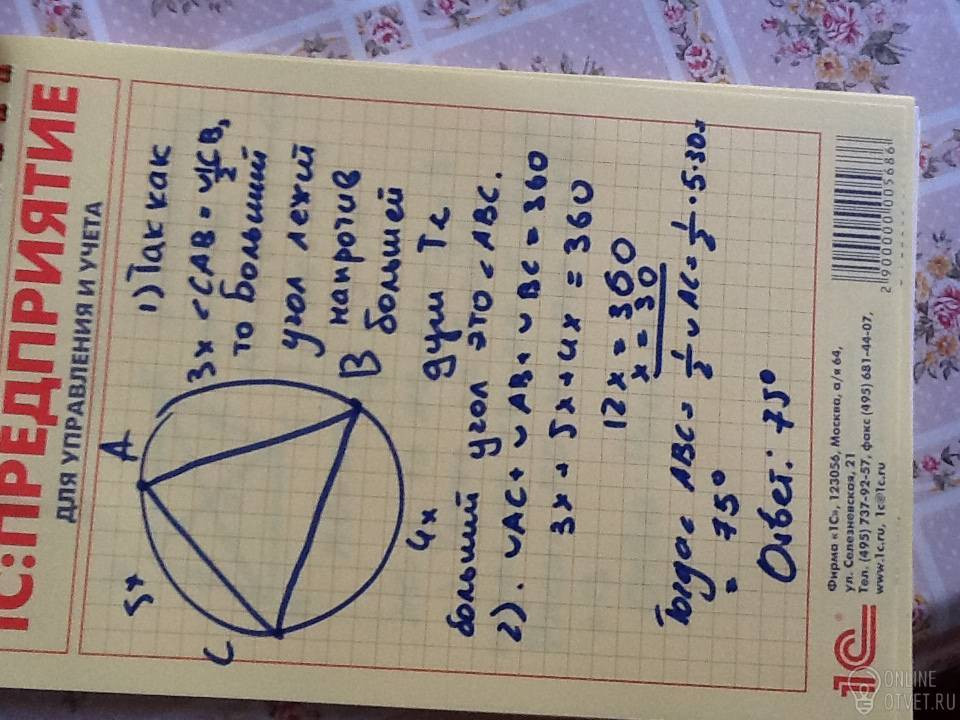 1С:ПРЕДПРИЯТИЕ
ДЛЯ УПРАВЛЕНИЯ И УЧЕТА
5x
A
C
B
3x
4x
1) Так как
<CAB = ◡CB/2,
то больший
угол лежит
напротив
большей
дуги Тс
больший угол это <ABC.
2). ◡AC + ◡AB + ◡BC = 360
3x + 5x + 4x = 360
12x = 360
x = 30
Тогда < ABC = 1/2 ◡ AC = 1/2 · 5 · 30 =
= 75°
Ответ: 75°
1С®
Фирма «1С», 123056, Москва, а/я 64,
ул. Селезневская, 21
Тел. (495) 737-92-57, факс (495) 681-44-07,
www.1c.ru, 1c@1c.ru
2 900000 005686
ONLINE
OTVET.RU